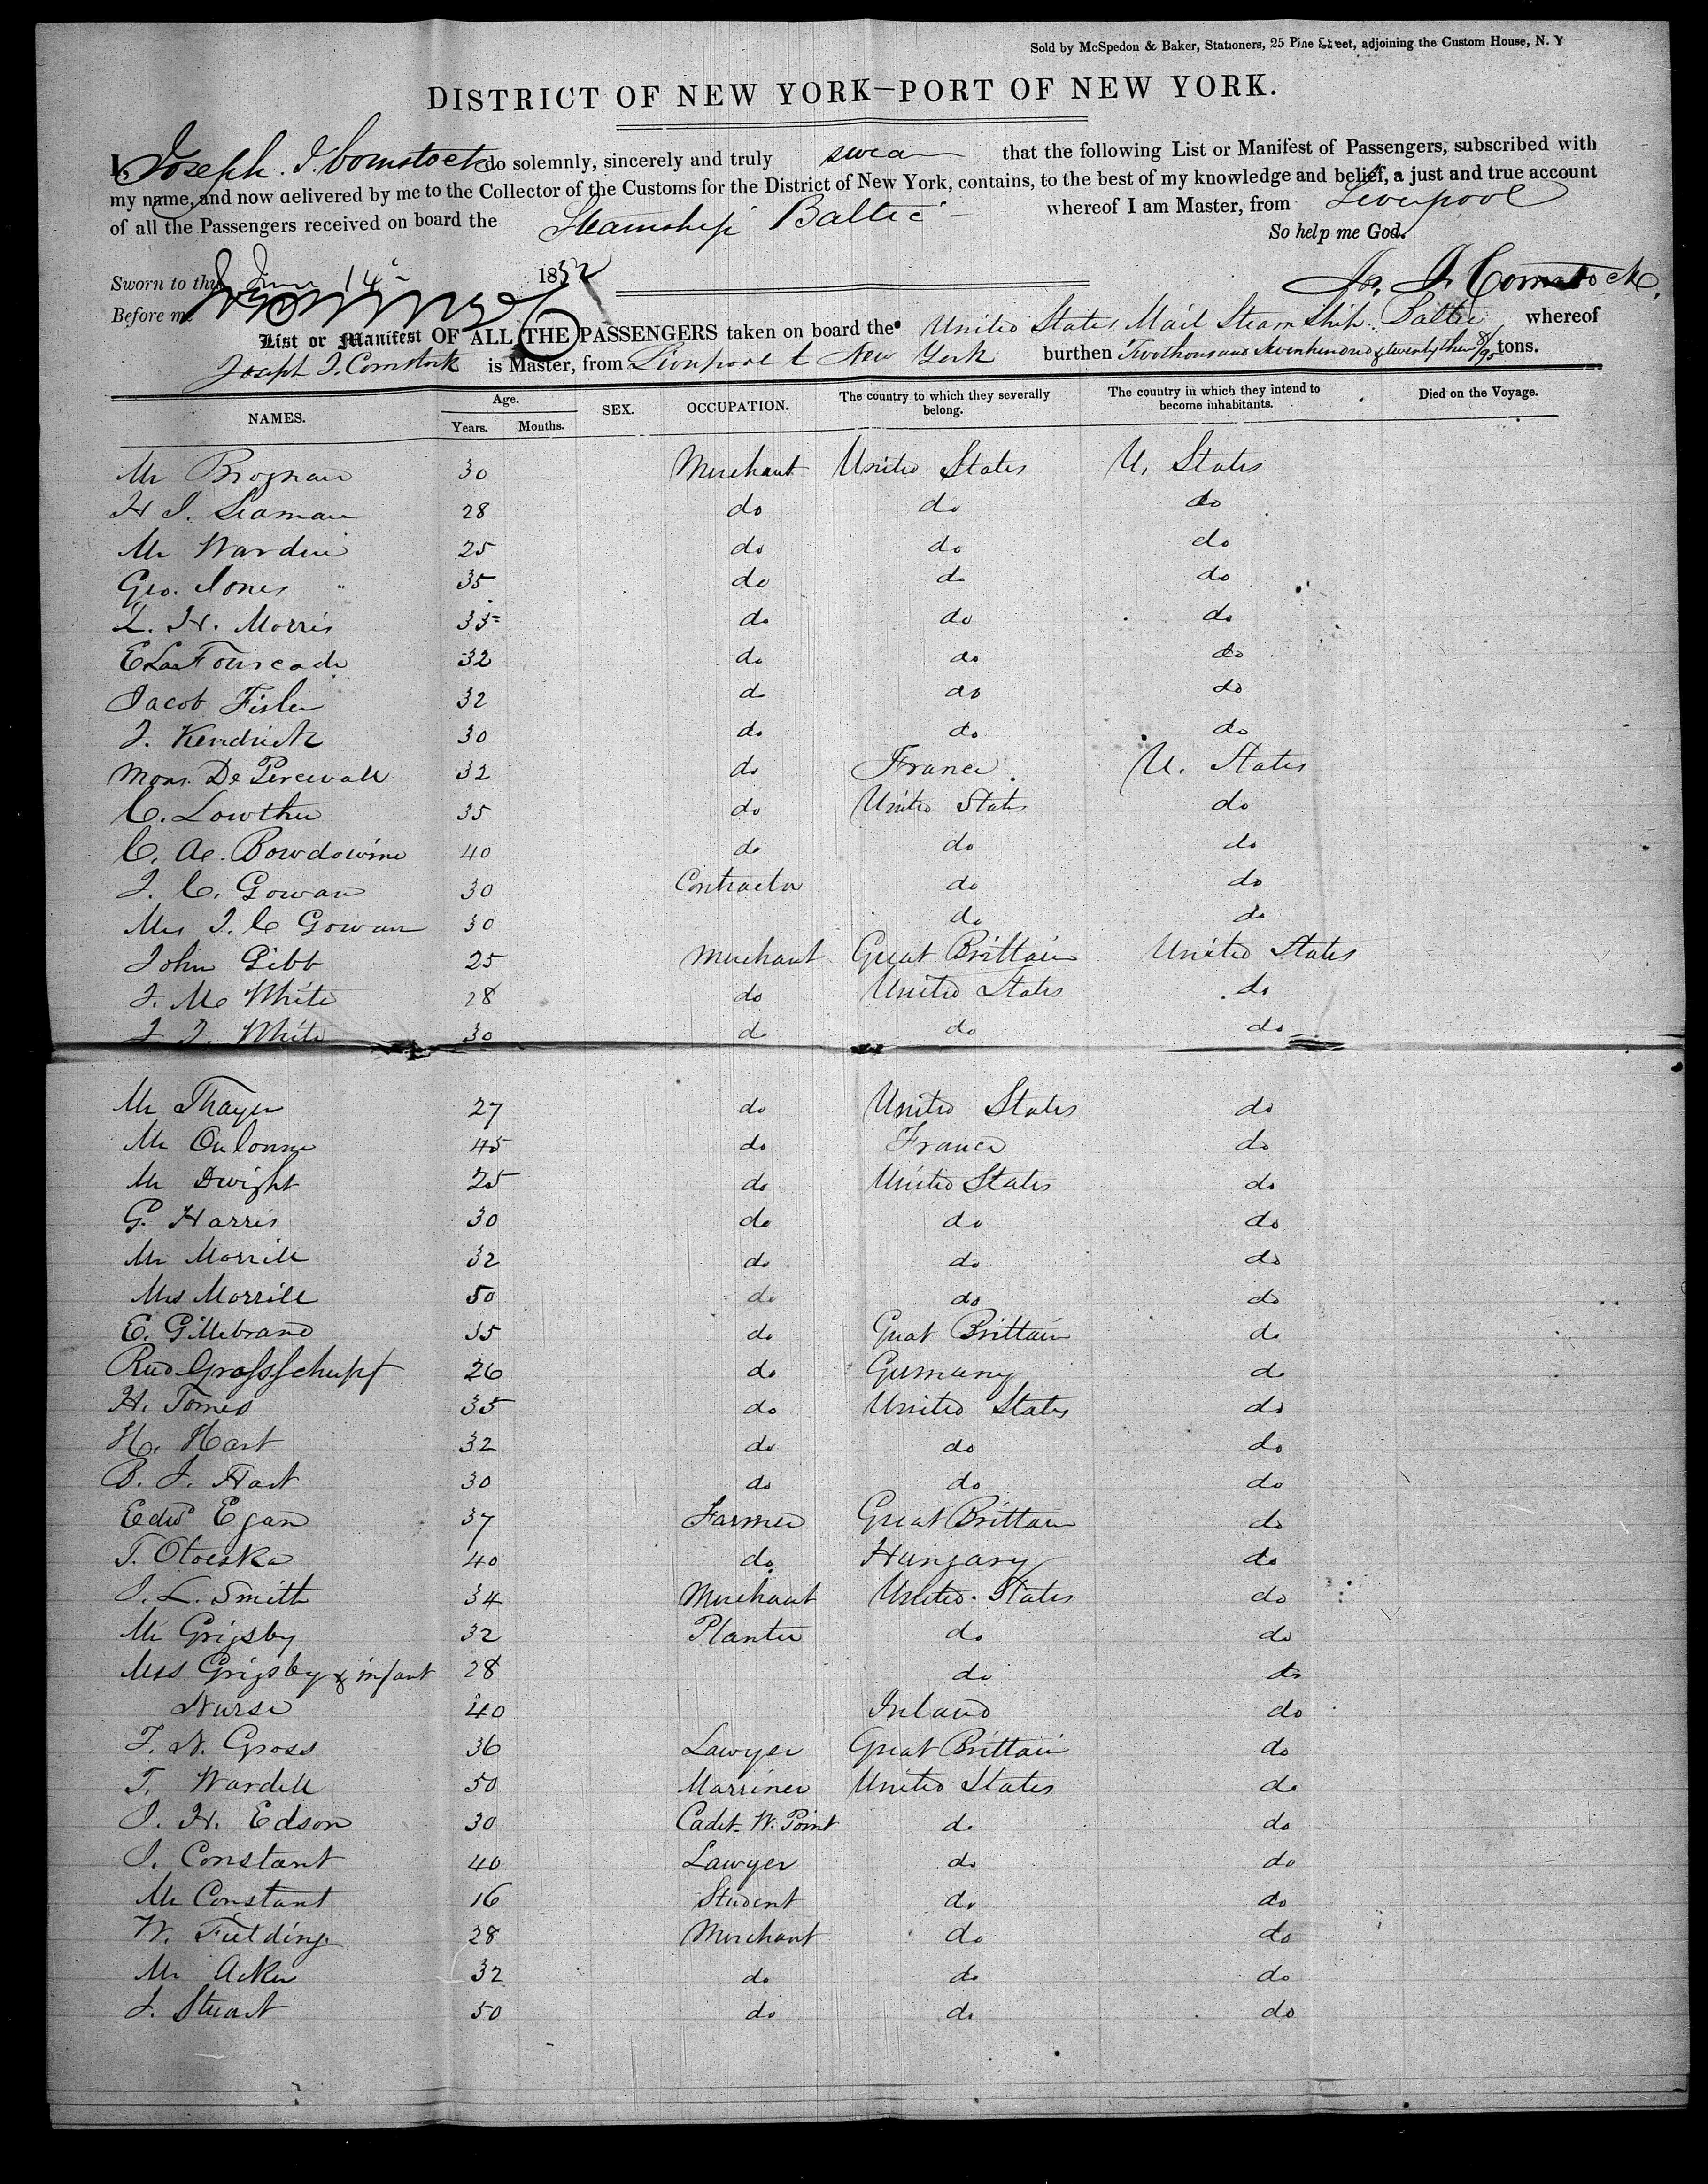 Sold by McSpedon & Baker, Stationers, 25 Pine Street, adjoining the Custom House, N. Y
DISTRICT OF NEW YORK—PORT OF NEW YORK.
I, Joseph. J. Comstock do solemnly, sincerely and truly swear that the following List or Manifest of Passengers, subscribed with
my name, and now delivered by me to the Collector of the Customs for the District of New York, contains, to the best of my knowledge and belief, a just and true account
of all the Passengers received on board the Steamship Baltic whereof I am Master, from Liverpool
So help me God.
Sworn to this June 14 1852 Jos. J. Comstock.
Before me
List or Manifest OF ALL THE PASSENGERS taken on board the United States Mail Steam Ship Baltic whereof
Joseph J. Comstock is Master, from Liverpool to New York burthen Two thousand Seven hundred & twenty three 8/95 tons.
NAMES. Age. Years. Months. SEX. OCCUPATION. The country to which they severally belong. The country in which they intend to become inhabitants. Died on the Voyage.
Mr Brognan 30 Merchant United States U. States
H J. Seaman 28 do do do
Mr Wardin 25 do do do
Geo. Jones 35 do do do
L. H. Morris 35 do do do
E LaFourcade 32 do do do
Jacob Fisler 32 do do do
J. Kendrick 30 do do do
Mons. De Percevall 32 do France U. States
C. Lowther 35 do United States do
C. Ae. Bowdowine 40 do do do
J. C. Gowan 30 Contractor do do
Mrs J. C Gowan 30 do do
John Gibb 25 Merchant Great Brittain United States
J. Mc White 28 do United States do
J J. White 30 do do do
Mr Thayer 27 do United States do
Mr 45 do France do
Mr Dwight 25 do United States do
G. Harris 30 do do do
Mr Morrill 32 do do do
Mrs Morrill 50 do do do
E. Gillebrand 35 do Great Brittain do
Rud Grossschupf 26 do Germany do
H. Tomes 35 do United States do
H. Hart 32 do do do
B. J. Hart 30 do do do
Edwd Egan 37 Farmer Great Brittain do
T. Otoeska 40 do Hungary do
J. L. Smith 34 Merchant United States do
Mr Grigsby 32 Planter do do
Mrs Grigsby & infant 28 do do
Nurse 40 Ireland do
F. N. Gross 36 Lawyer Great Brittain do
T. Wardell 50 Marriner United States do
J. H. Edson 30 Cadet W. Point do do
J. Constant 40 Lawyer do do
Mr Constant 16 Student do do
W. Fielding 28 Merchant do do
Mr Acker 32 do do do
J. Stuart 50 do do do